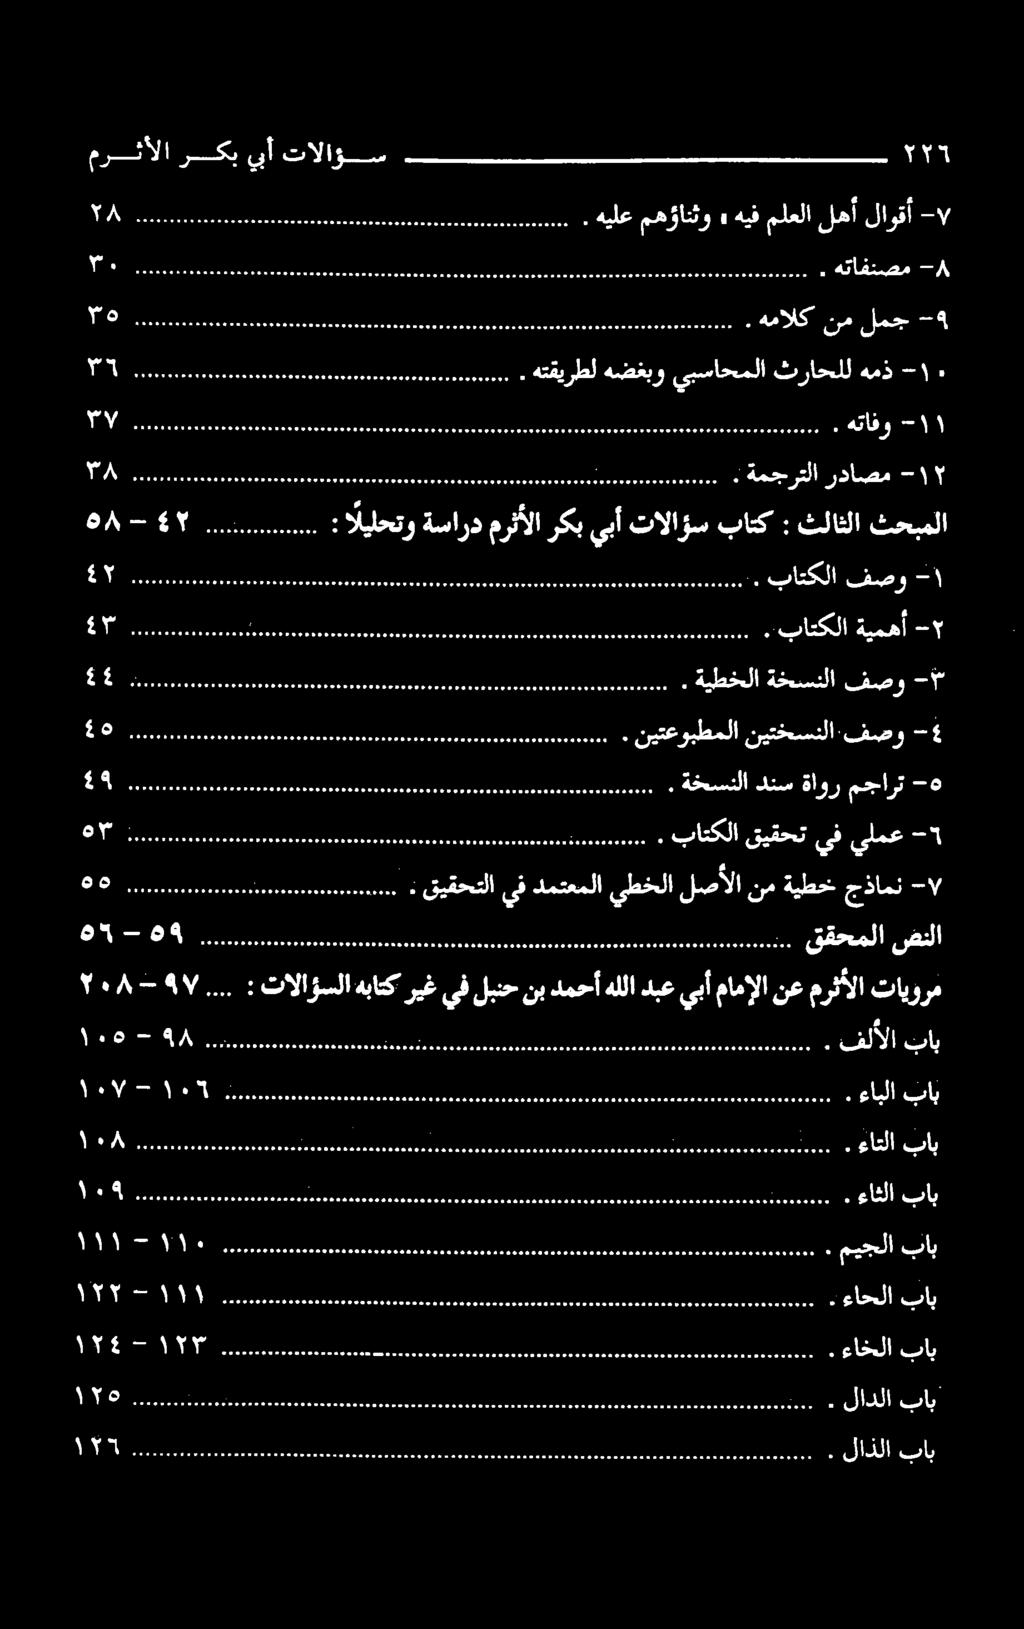 ٢٢٦ ـــــــ سـؤالات أبي بكـر الأثـرم
٧- أقوال أهل العلم فيه « وثناؤهم عليه . ..... ٢٨
٨- مصنفاته . ..... ٣٠
٩- جمل من كلامه . ..... ٣٥
١٠- ذمه للحارث المحاسبي وبغضه لطريقته . ..... ٣٦
١١- وفاته . ..... ٣٧
١٢- مصادر الترجمة . ..... ٣٨
المبحث الثالث : كتاب سؤالات أبي بكر الأثرم دراسة وتحليلاً : ..... ٤٢ – ٥٨
١- وصف الكتاب . ..... ٤٢
٢- أهمية الكتاب . ..... ٤٣
٣- وصف النسخة الخطية . ..... ٤٤
٤- وصف النسختين المطبوعتين . ..... ٤٥
٥- تراجم رواة سند النسخة . ..... ٤٩
٦- عملي في تحقيق الكتاب . ..... ٥٣
٧- نماذج خطية من الأصل الخطي المعتمد في التحقيق . ..... ٥٥
النص المحقق ..... ٥٩ – ٥٦
مرويات الأثرم عن الإمام أبي عبد الله أحمد بن حنبل في غير كتابه السؤالات : .... ٩٧ – ٢٠٨
باب الألف . ..... ٩٨ – ١٠٥
باب الباء . ..... ١٠٦ – ١٠٧
باب التاء . ..... ١٠٨
باب الثاء . ..... ١٠٩
باب الجيم . ..... ١١٠ – ١١١
باب الحاء . ..... ١١١ – ١٢٢
باب الخاء . ..... ١٢٣ – ١٢٤
باب الدال . ..... ١٢٥
باب الذال . ..... ١٢٦